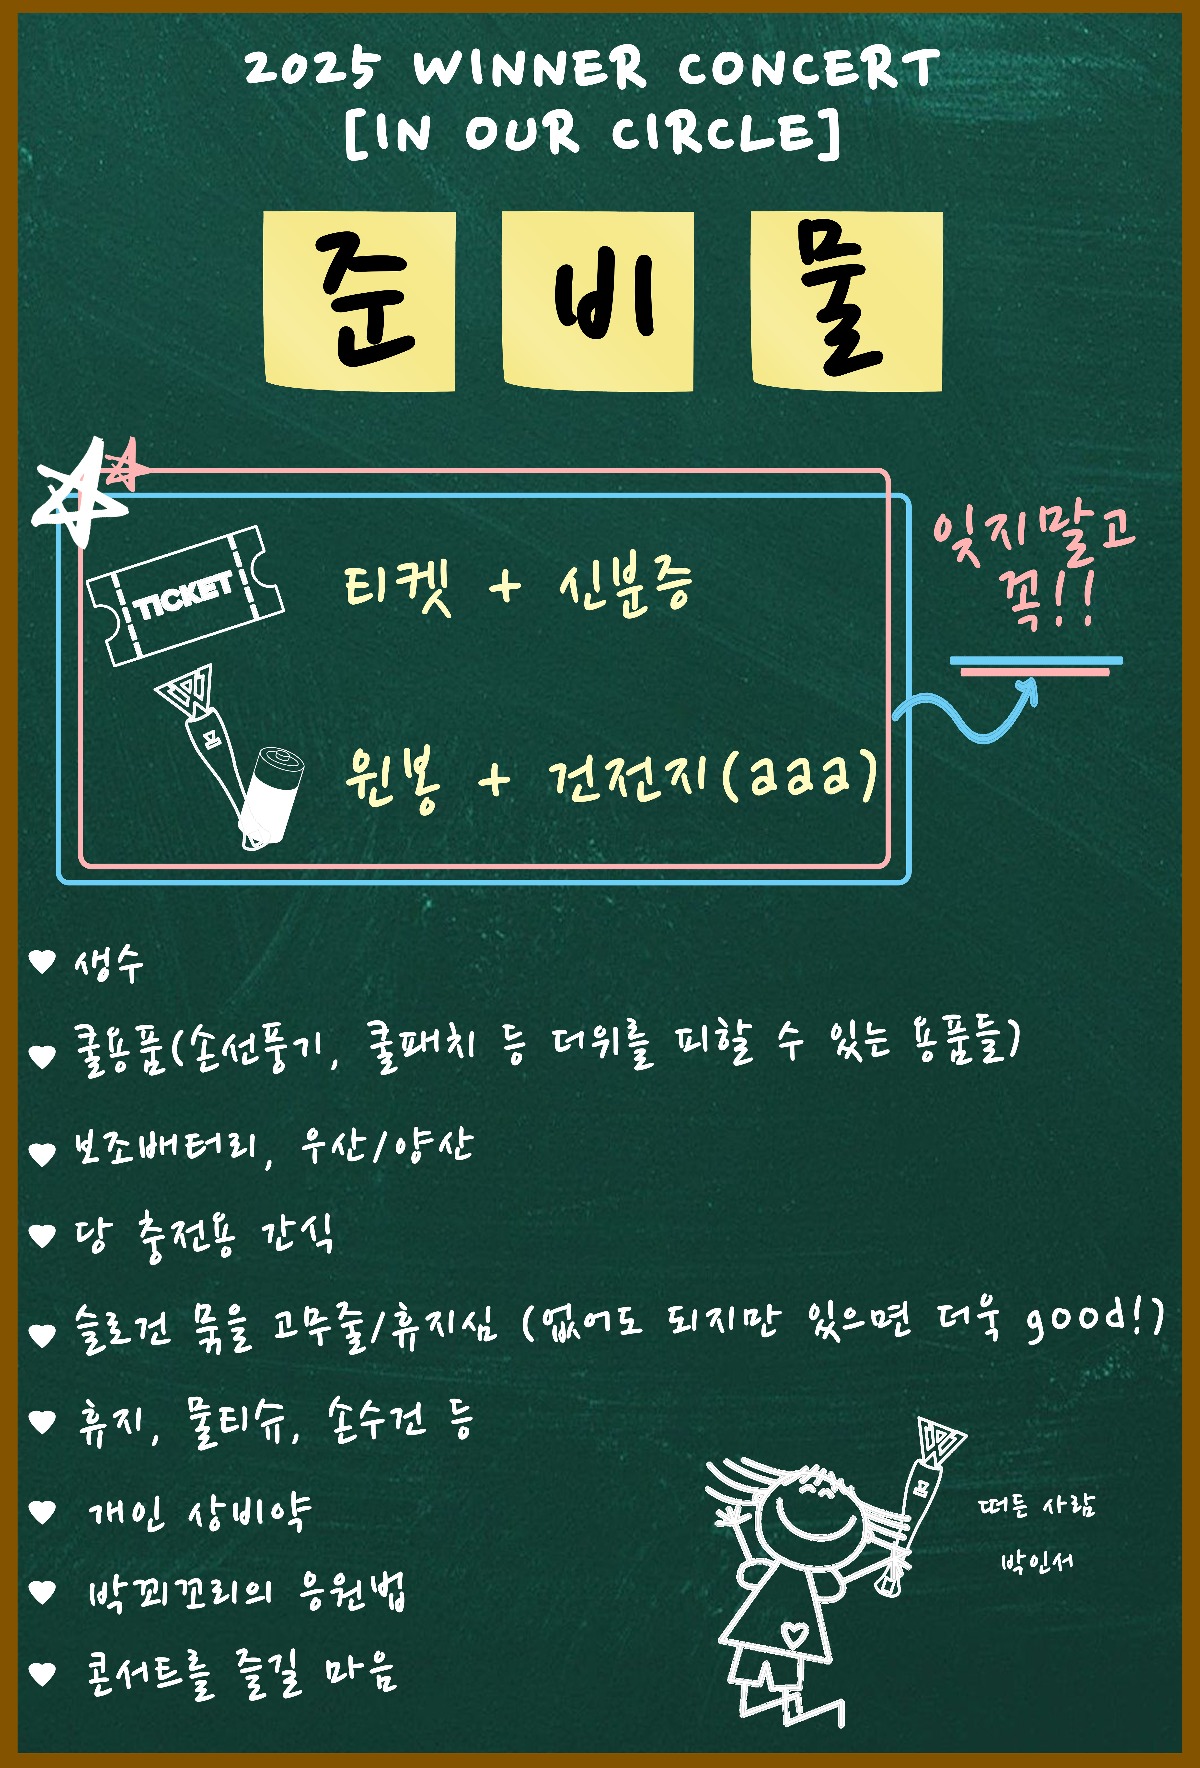 2025 WINNER CONCERT
[IN OUR CIRCLE]
준 비 물
TICKET
티켓 + 신분증
잊지말고
꼭!!
원봉 + 건전지(aaa)
생수
쿨용품(손선풍기, 쿨패치 등 더위를 피할 수 있는 용품들)
보조배터리, 우산/양산
당 충전용 간식
슬로건 묶을 고무줄/휴지심 (없어도 되지만 있으면 더욱 good!)
휴지, 물티슈, 손수건 등
개인 상비약
박꾀꼬리의 응원법
콘서트를 즐길 마음
떠든 사람
박인서